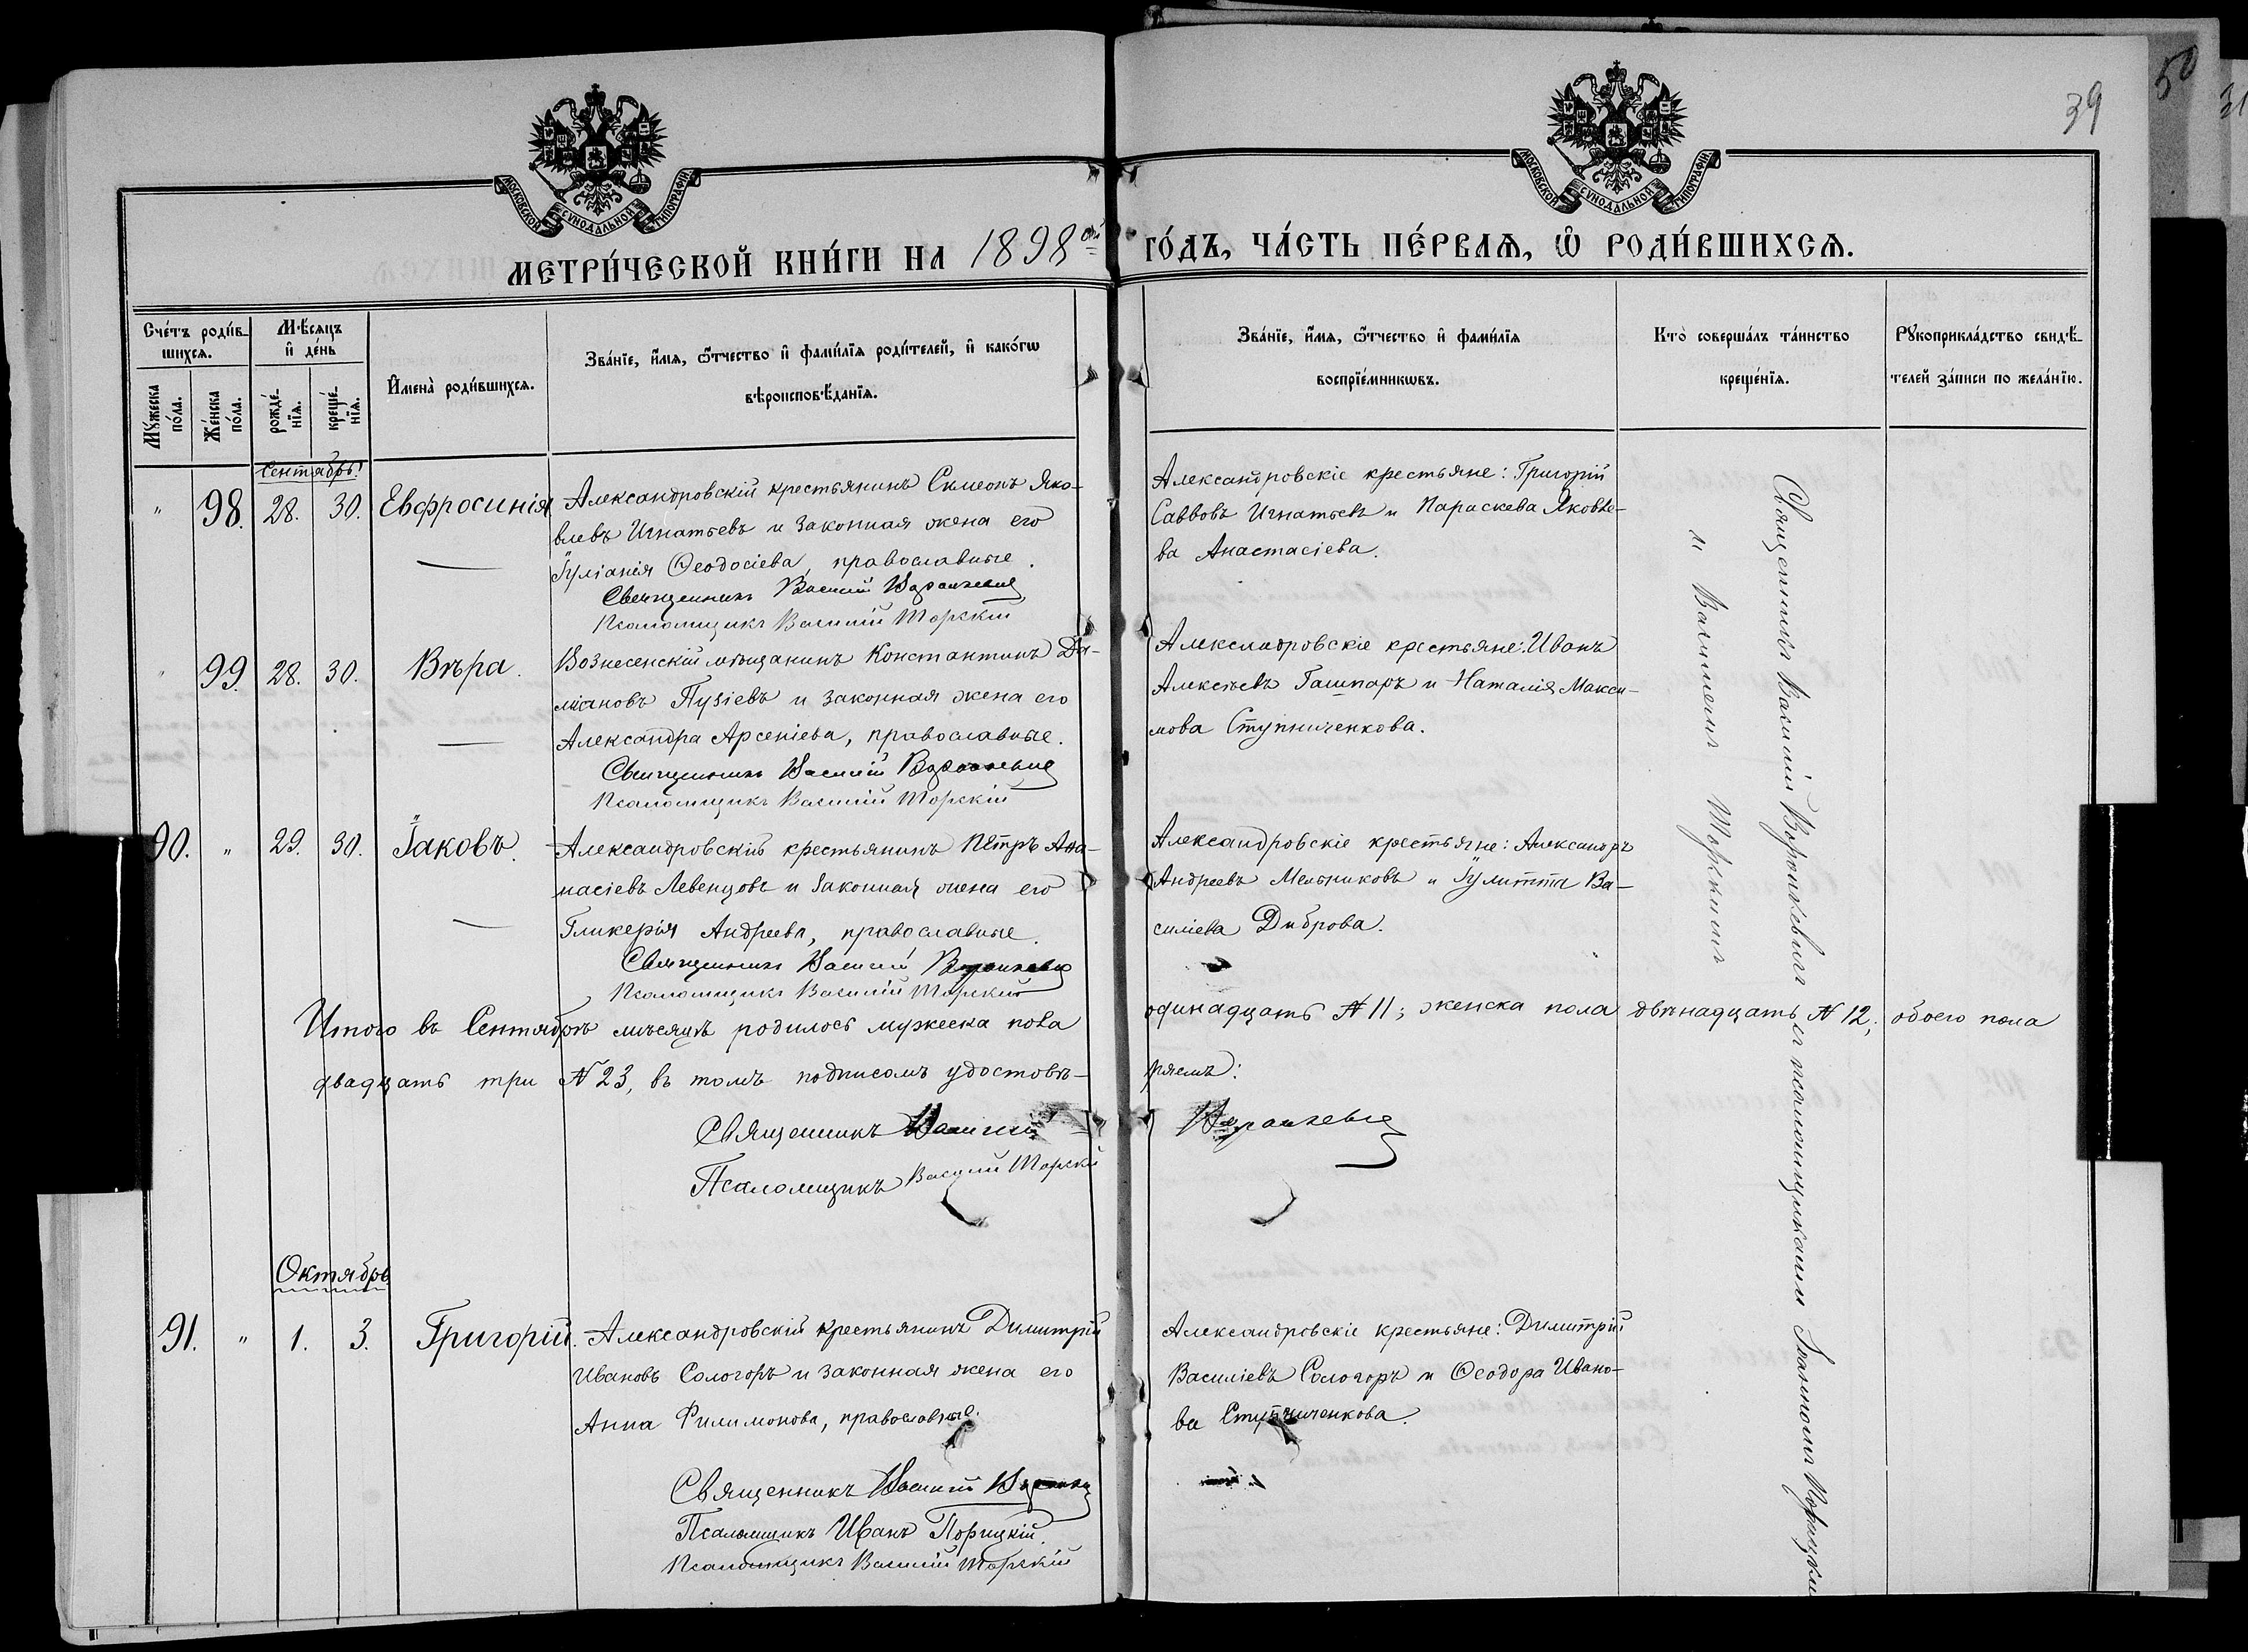 39
50
31
МОСКОВСКОЙ СѴНОДАЛЬНОЙ ТИПОГРАФІИ
МОСКОВСКОЙ СѴНОДАЛЬНОЙ ТИПОГРАФІИ
МЕТРИ́ЧЕСКОЙ КНИ́ГИ НА 1898ой ГО́ДЪ, ЧА́СТЬ ПЕ́РВАѦ, Ѡ҆ РОДИ́ВШИХСѦ.
Сче́тъ роди́в-
шихсѧ.
Мꙋ́жеска по́ла.
Же́нска по́ла.
Мѣ́сѧцъ
и҆ де́нь
рожде́-
нїѧ.
креще́-
нїѧ.
И҆мена̀ роди́вшихсѧ.
Зва́нїе, и҆́мѧ, ѻ҆́тчество и҆ фами́лїѧ роди́телей, и҆ како́гѡ
вѣроисповѣ́данїѧ.
Зва́нїе, и҆́мѧ, ѻ҆́тчество и҆ фами́лїѧ
воспрїе́мникѡвъ.
Кто̀ соверша́лъ та́инство
креще́нїѧ.
Рꙋкоприкла́дство свидѣ́-
телей за́писи по жела́нїю.
Сентябрь
" 98. 28. 30. Евфросинія
Александровскій крестьянинъ Симеонъ Яко-
влевъ Игнатьевъ и законная жена его
Іуліанія Ѳеодосіева, православные.
Священникъ Василій Воронкевич
Псаломщикъ Василій Торскій
Александровскіе крестьяне: Григорій
Савовъ Игнатьевъ и Параскева Яковле-
ва Анастасіева.
" 99. 28. 30. Вѣра.
Вознесенскій мѣщанинъ Константинъ Да-
міановъ Пузіевъ и законная жена его
Александра Арсеніева, православные.
Священникъ Василій Воронкевич
Псаломщикъ Василій Торскій
Александровскіе крестьяне: Иванъ
Алексѣевъ Гашпаръ и Наталія Макси-
мова Ступниченкова.
90. " 29. 30. Іаковъ.
Александровскій крестьянинъ Петръ Аѳа-
насіевъ Левенцовъ и законная жена его
Гликерія Андреева, православные.
Священникъ Василій Воронкевич
Псаломщикъ Василій Торскій
Александровскіе крестьяне: Александръ
Андреевъ Мельниковъ и Іулитта Ва-
силіева Диброва.
Итого въ Сентябрѣ мѣсяцѣ родилось мужеска пола одинадцать № 11; женска пола двѣнадцать № 12; обоего пола
двадцать три № 23, въ томъ подписомъ удостовѣ-ряемъ:
Священникъ Василій Воронкевич
Псаломщикъ Василій Торскій
Октябрь
91. " 1. 3. Григорій.
Александровскій крестьянинъ Димитрій
Ивановъ Сологоръ и законная жена его
Анна Филимонова, православные.
Священникъ Василій
Псаломщикъ Иванъ Порицкій.
Псаломщикъ Василій Торскій
Александровскіе крестьяне: Димитрій
Василіевъ Сологоръ и Ѳеодора Ивано-
ва Ступниченкова.
Священникъ Василій Воронкевичъ съ псаломщиками Іоанномъ Порицким
и Василіемъ Торскимъ